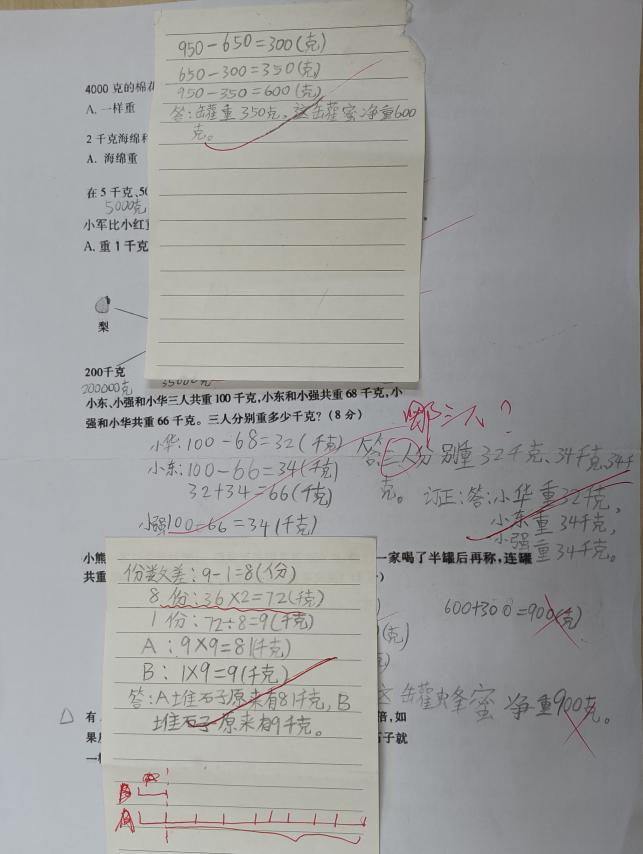 950-650=300(克)
650-300=350(克)
950-350=600(克)
答:罐重350克,这罐蜜净重600
克。
4000 克的棉花
A. 一样重
2 千克海绵和
A. 海绵重
在 5 千克、50
5000克
小军比小红重
A. 重 1 千克
梨
200千克
200000克
35000克
小东、小强和小华三人共重 100 千克,小东和小强共重 68 千克,小
强和小华共重 66 千克。三人分别重多少千克?(8 分)
哪三人?
小华:100-68=32(千克)
小东:100-66=34(千克)
32+34=66(千克)
小强100-66=34(千克)
答:三人分别重32千克、34千克、34千
克。
订正:答:小华重32千克,
小东重34千克,
小强重34千克。
小熊
一家喝了半罐后再称,连罐
共重
600+300=900(克)
(克)
这罐蜂蜜净重900克。
份数差:9-1=8(份)
8份:36×2=72(千克)
1份:72÷8=9(千克)
A:9×9=81(千克)
B:1×9=9(千克)
答:A堆石子原来有81千克,B
堆石子原来有9千克。
有
倍,如
果
石子就
一
B
A